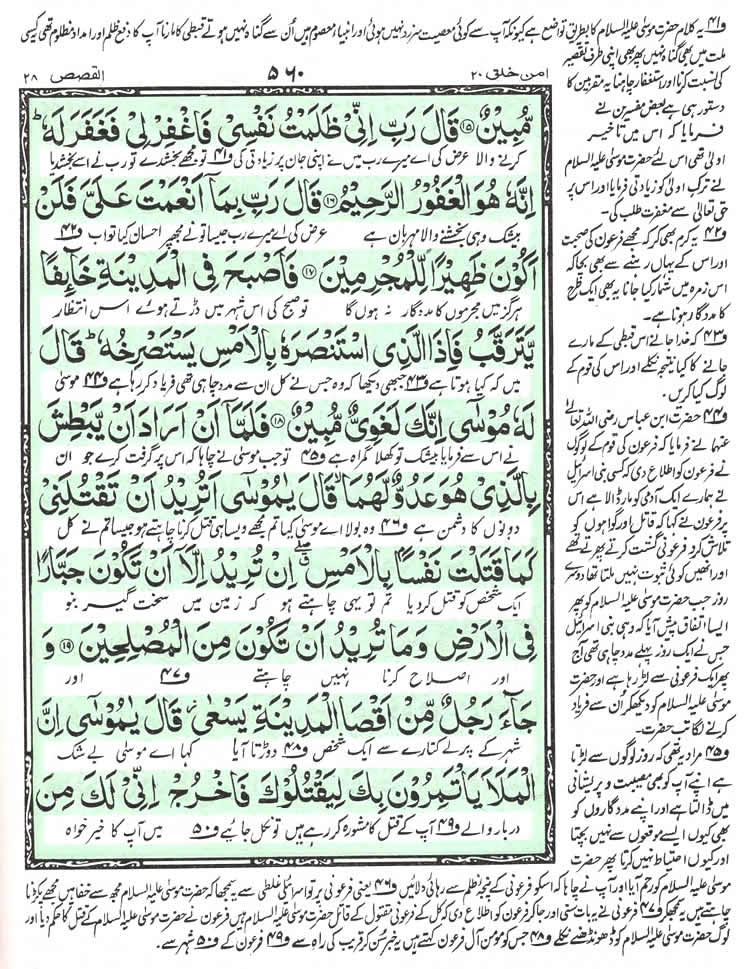 و۴۱ یہ کلام حضرت موسیٰ علیہ السلام کا بطریق تواضع ہے کیونکہ آپ سے کوئی معصیت سرزد نہیں ہوئی اور انبیاء معصوم ہیں اُن سے گناہ نہیں ہوتے قبطی کا مارنا آپ کا دفع ظلم اور امداد مظلوم تھی کسی
امن خلق ۲۰
۵۶۰
القصص ۲۸
مُّبِيْنٌ ۱۵ قَالَ رَبِّ اِنِّيْ ظَلَمْتُ نَفْسِيْ فَاغْفِرْ لِيْ فَغَفَرَ لَهٗ ؕ
کرنے والا عرض کی اے میرے رب میں نے اپنی جان پر زیادتی کی و۴۱ تو مجھے بخشدے تو رب نے اسے بخشدیا
اِنَّهٗ هُوَ الْغَفُوْرُ الرَّحِيْمُ ۱۶ قَالَ رَبِّ بِمَاۤ اَنْعَمْتَ عَلَيَّ فَلَنْ
بیشک وہی بخشنے والا مہربان ہے عرض کی اے میرے رب جیسا تو نے مجھ پر احسان کیا تو اب و۴۲
اَكُوْنَ ظَهِيْرًا لِّلْمُجْرِمِيْنَ ۱۷ فَاَصْبَحَ فِي الْمَدِيْنَةِ خَآىِٕفًا
ہرگز میں مجرموں کا مددگار نہ ہوں گا تو صبح کی اس شہر میں ڈرتے ہوئے اس انتظار
يَّتَرَقَّبُ فَاِذَا الَّذِي اسْتَنْصَرَهٗ بِالْاَمْسِ يَسْتَصْرِخُهٗ ؕ قَالَ
میں کہ کیا ہوتا ہے و۴۳ جبھی دیکھا کہ وہ جس نے کل ان سے مدد چاہی تھی فریاد کر رہا ہے و۴۴ موسیٰ
لَهٗ مُوْسٰۤى اِنَّكَ لَغَوِيٌّ مُّبِيْنٌ ۱۸ فَلَمَّاۤ اَنْ اَرَادَ اَنْ يَّبْطِشَ
نے اس سے فرمایا بیشک تو کھلا گمراہ ہے و۴۵ تو جب موسیٰ نے چاہا کہ اس پر گرفت کرے جو ان
بِالَّذِيْ هُوَ عَدُوٌّ لَّهُمَا ۙ قَالَ يٰمُوْسٰۤى اَتُرِيْدُ اَنْ تَقْتُلَنِيْ
دونوں کا دشمن ہے و۴۶ وہ بولا اے موسیٰ کیا تم مجھے ویسا ہی قتل کرنا چاہتے ہو جیسا تم نے کل
كَمَا قَتَلْتَ نَفْسًۢا بِالْاَمْسِ ۖ اِنْ تُرِيْدُ اِلَّاۤ اَنْ تَكُوْنَ جَبَّارًا
ایک شخص کو قتل کر دیا تم تو یہی چاہتے ہو کہ زمین میں سخت گیر بنو
فِي الْاَرْضِ وَمَا تُرِيْدُ اَنْ تَكُوْنَ مِنَ الْمُصْلِحِيْنَ ۱۹ وَ
اور اصلاح کرنا نہیں چاہتے و۴۷ اور
جَآءَ رَجُلٌ مِّنْ اَقْصَا الْمَدِيْنَةِ يَسْعٰى ۫ قَالَ يٰمُوْسٰۤى اِنَّ
شہر کے پرلے کنارے سے ایک شخص و۴۸ دوڑتا آیا کہا اے موسیٰ بے شک
الْمَلَاَ يَاْتَمِرُوْنَ بِكَ لِيَقْتُلُوْكَ فَاخْرُجْ اِنِّيْ لَكَ مِنَ
دربار والے و۴۹ آپ کے قتل کا مشورہ کر رہے ہیں تو نکل جائیے و۵۰ میں آپ کا خیر خواہ
ملت میں بھی گناہ نہیں پھر بھی اپنی طرف تقصیر
کی نسبت کرنا اور استغفار چاہنا یہ مقربین کا
دستور ہی ہے بعض مفسرین نے
فرمایا کہ اس میں تاخیر
اولیٰ تھی اس لئے حضرت موسیٰ علیہ السلام
نے ترک اولیٰ کو زیادتی فرمایا اور اس پر
حق تعالیٰ سے مغفرت طلب کی۔
و۴۲ یہ کرم بھی کر کہ مجھے فرعون کی صحبت
اور اس کے یہاں رہنے سے بھی بچا کہ
اس زمرہ میں شمار کیا جانا یہ بھی ایک طرح
کا مددگار ہونا ہے۔
و۴۳ کہ خدا جانے اس قبطی کے مارے
جانے کا کیا نتیجہ نکلے اور اس کی قوم کے
لوگ کیا کریں۔
و۴۴ حضرت ابن عباس رضی اللہ تعالیٰ
عنہما نے فرمایا کہ فرعون کی قوم کے لوگوں
نے فرعون کو اطلاع دی کہ کسی بنی اسرائیل
نے ہمارے ایک آدمی کو مار ڈالا ہے اس
پر فرعون نے کہا کہ قاتل اور گواہوں کو
تلاش کرو فرعونی گشت کرتے پھرتے تھے
اور انھیں کوئی ثبوت نہیں ملتا تھا دوسرے
روز جب حضرت موسیٰ علیہ السلام کو پھر
ایسا اتفاق پیش آیا کہ وہی بنی اسرائیل
جس نے ایک روز پہلے مدد چاہی تھی آج
پھر ایک فرعونی سے لڑ رہا ہے اور حضرت
موسیٰ علیہ السلام کو دیکھ کر اُن سے فریاد
کرنے لگا تب حضرت۔
و۴۵ مراد یہ تھی کہ روز لوگوں سے لڑتا
ہے اپنے آپ کو بھی مصیبت و پریشانی
میں ڈالتا ہے اور اپنے مددگاروں کو
بھی کیوں ایسے موقعوں سے نہیں بچتا
اور کیوں احتیاط نہیں کرتا پھر حضرت
موسیٰ علیہ السلام کو رحم آیا اور آپ نے چاہا کہ اسکو فرعونی کے پنجۂ ظلم سے رہائی دلائیں و۴۶ یعنی فرعونی پر تو اسرائیلی غلطی سے یہ سمجھا کہ حضرت موسیٰ علیہ السلام مجھ سے خفا ہیں مجھے پکڑنا
چاہتے ہیں یہ سمجھ کر و۴۷ فرعونی نے یہ بات سنی اور جا کر فرعون کو اطلاع دی کہ کل کے فرعونی مقتول کے قاتل حضرت موسیٰ علیہ السلام ہیں فرعون نے حضرت موسیٰ علیہ السلام کے قتل کا حکم دیا اور
لوگ حضرت موسیٰ علیہ السلام کو ڈھونڈھنے نکلے و۴۸ جس کو مومن آل فرعون کہتے ہیں یہ خبر سُن کر قریب کی راہ سے و۴۹ فرعون کے و۵۰ شہر سے۔